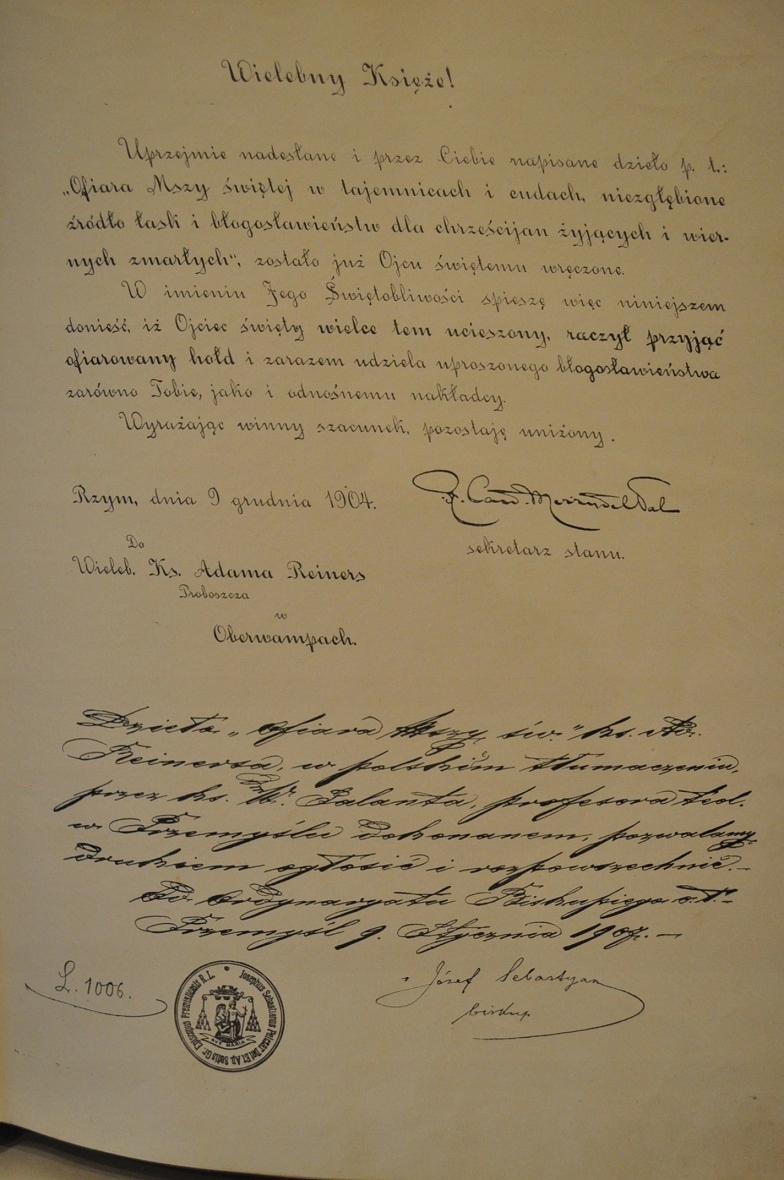 Wielebny Księże!
Uprzejmie nadesłane i przez Ciebie napisane dzieło p. t.:
„Ofiara Mszy świętej w tajemnicach i cudach, niezgłębione
źródło łask i błogosławieństw dla chrześcijan żyjących i wier-
nych zmarłych“, zostało już Ojcu świętemu wręczone.
W imieniu Jego Świętobliwości spieszę więc niniejszem
donieść, iż Ojciec święty wielce tem ucieszony, raczył przyjąć
ofiarowany hołd i zarazem udziela uproszonego błogosławieństwa
zarówno Tobie, jako i odnośnemu nakładcy.
Wyrażając winny szacunek, pozostaję uniżony.
Rzym, dnia 9 grudnia 1904.
R. Card. Merry del Val
sekretarz stanu.
Do
Wieleb. Ks. Adama Reiners
Proboszcza
w
Oberwampach.
Dzieło „Ofiara Mszy św.“ ks. Ad.
Reinersa, w polskim tłumaczeniu,
przez ks. Dr. W. Galanta, profesora teol.
w Przemyślu dokonanem, pozwalamy
drukiem ogłosić i rozpowszechnić.—
Od Ordynaryatu Biskupiego o. ł.—
Przemyśl 9. Stycznia 1907.—
L. 1006.
Józef Sebastyan
biskup
Josephus Sebastianus Pelczar Dei Et Ap. Sedis Gr. Episcopus Premisliensis R. L.
AVE MARIA